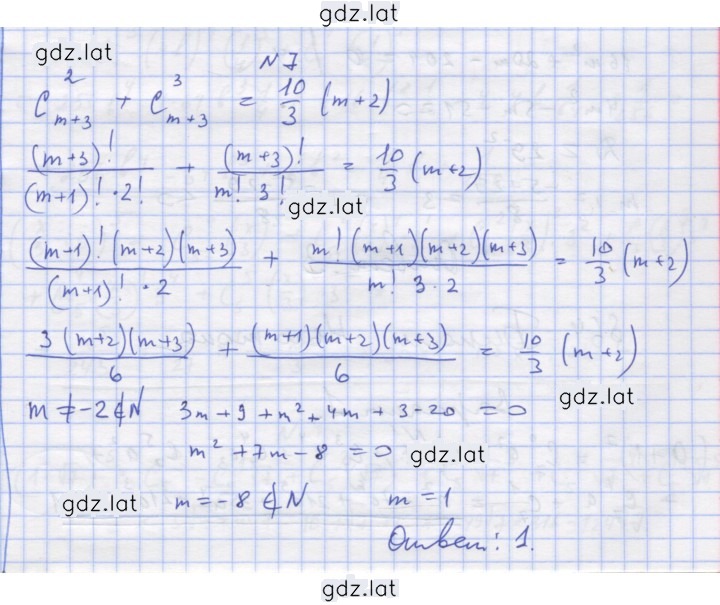 gdz.lat
gdz.lat
N 7
C²ₘ₊₃ + C³ₘ₊₃ = 10/3 (m+2)
(m+3)!/((m+1)!·2!) + (m+3)!/(m! 3!) = 10/3 (m+2)
gdz.lat
((m+1)!(m+2)(m+3))/((m+1)!·2) + (m!(m+1)(m+2)(m+3))/(m! 3·2) = 10/3 (m+2)
(3(m+2)(m+3))/6 + ((m+1)(m+2)(m+3))/6 = 10/3 (m+2)
gdz.lat
m ≠ -2 ∉ N 3m + 9 + m² + 4m + 3 - 20 = 0
m² + 7m - 8 = 0 gdz.lat
gdz.lat m = -8 ∉ N m = 1
Ответ: 1.
gdz.lat